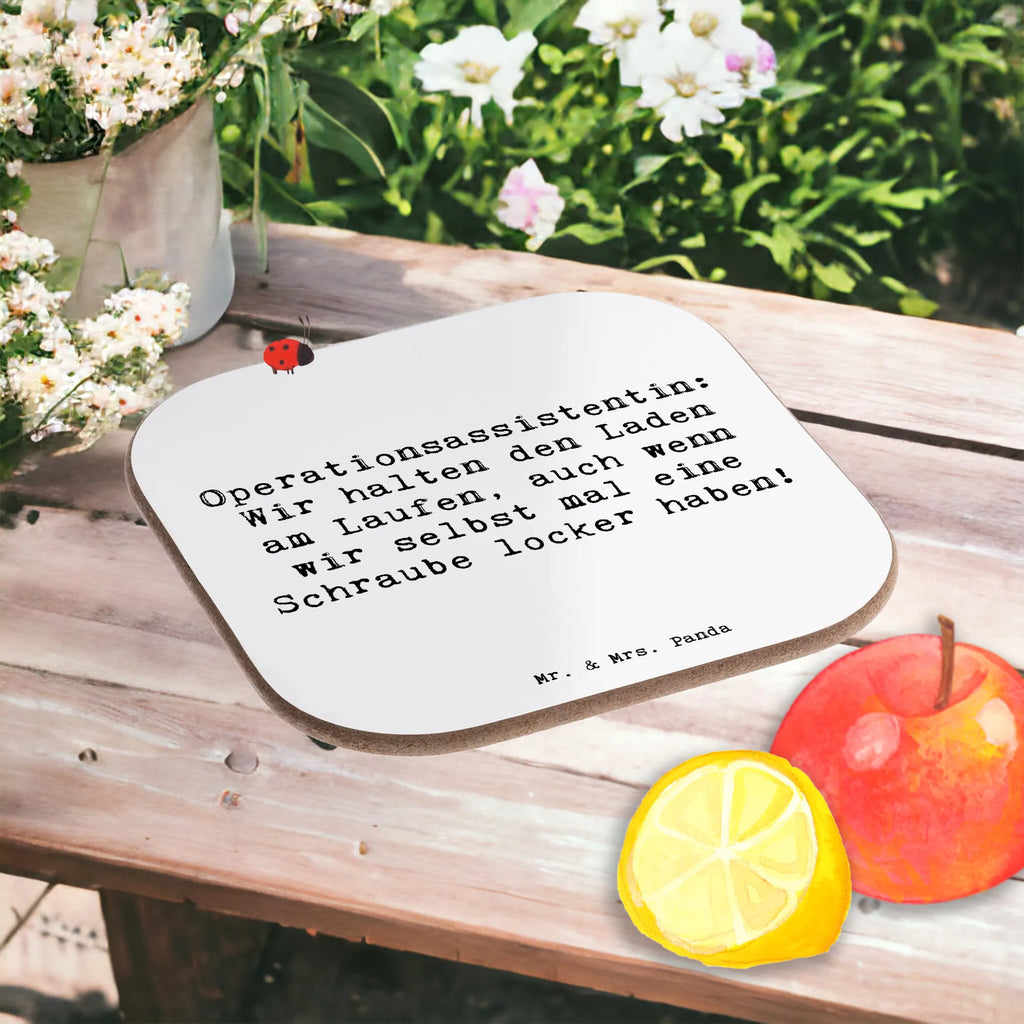 Operationsassistentin:
Wir halten den Laden
am Laufen, auch wenn
wir selbst mal eine
Schraube locker haben!
Mr. & Mrs. Panda